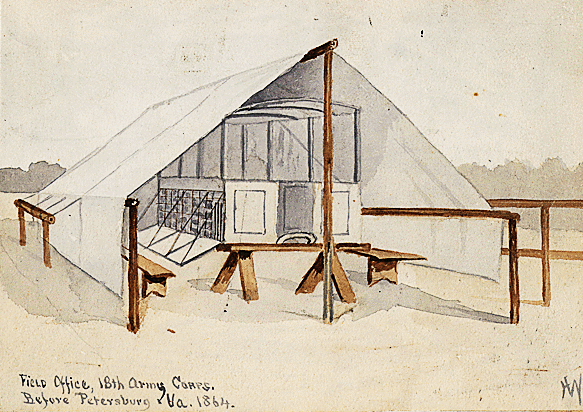 Field Office, 18th Army Corps.
Before Petersburg Va. 1864.
HW